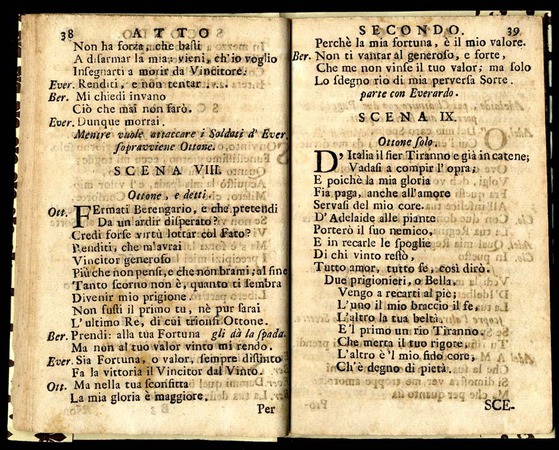 38 ATTO
Non ha forza, che basti
A disarmar la mia: vieni, ch'io voglio
Insegnarti a morir da Vincitore.
Ever. Renditi, e non tentar . . .
Ber. Mi chiedi invano
Ciò che mai non farò.
Ever. Dunque morrai.
Mentre vuole attaccare i Soldati d' Ever.
sopravviene Ottone.
SCENA VIII.
Ottone, e detti.
Ott. FErmati Berengario, e che pretendi
Da un ardir disperato?
Credi forse virtù lottar col Fato?
Renditi, che m'avrai
Vincitor generoso
Più che non pensi, e che non brami; al fine
Tanto scorno non è, quanto ti sembra
Divenir mio prigione.
Non fusti il primo tu, nè pur sarai
L' ultimo Re, di cui trionfi Ottone.
Ber. Prendi: alla tua Fortuna gli dà la spada.
Ma non al tuo valor vinto mi rendo.
Ever. Sia Fortuna, o valor, sempre distinto
Fa la vittoria il Vincitor dal Vinto.
Ott. Ma nella tua sconfitta
La mia gloria è maggiore.
Per
SECONDO. 39
Perchè la mia fortuna, è il mio valore.
Ber. Non ti vantar sì generoso, e forte,
Che me non vinse il tuo valor; ma solo
Lo sdegno rio di mia perversa Sorte.
parte con Everardo.
SCENA IX.
Ottone solo.
D' Italia il fier Tiranno e già in catene;
Vadasi a compir l' opra;
E poichè la mia gloria
Fia paga, anche all'amore
Servasi del mio core.
D'Adelaide alle piante
Porterò il suo nemico,
E in recarle le spoglie
Di chi vinto restò,
Tutto amor, tutto fe, così dirò.
Due prigionieri, o Bella,
Vengo a recarti al piè;
L'uno il mio braccio il fe,
L'altro la tua beltà.
E'l primo un rio Tiranno,
Che merta il tuo rigore,
L'altro è 'l mio fido core,
Ch'è degno di pietà.
SCE-